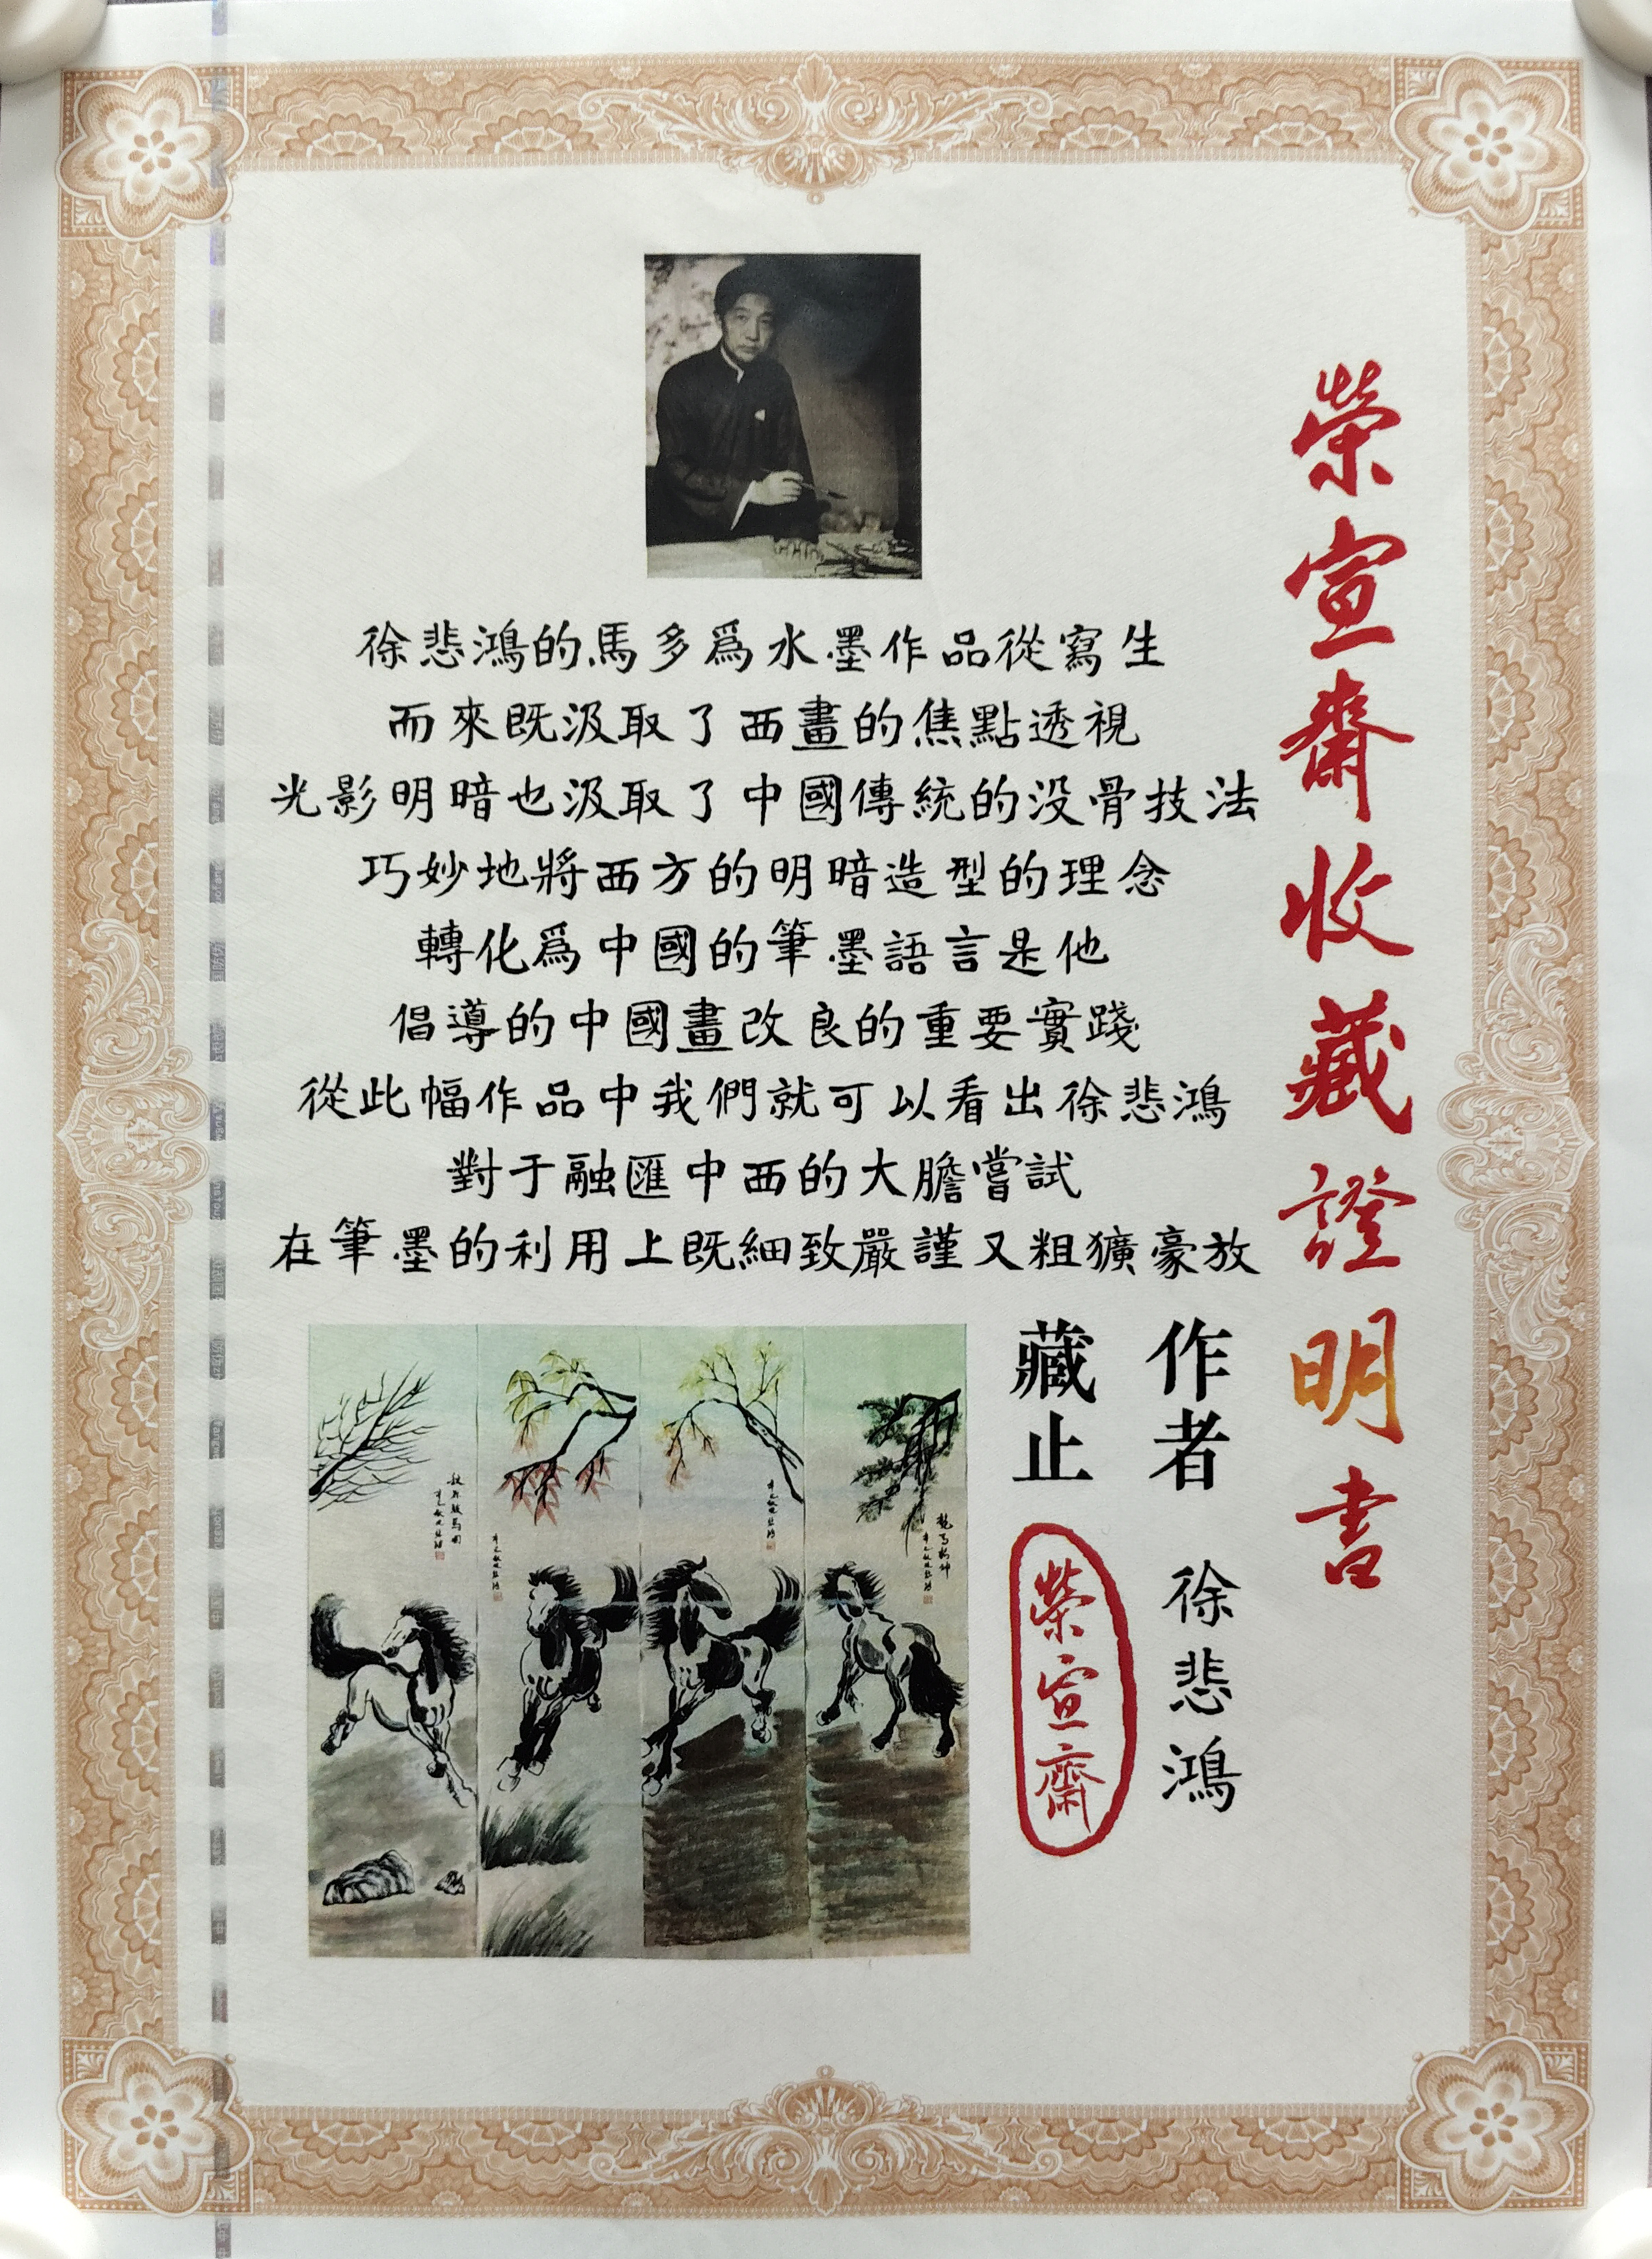 榮宣齋收藏證明書
徐悲鴻的馬多爲水墨作品從寫生
而來既汲取了西畫的焦點透視
光影明暗也汲取了中國傳統的没骨技法
巧妙地將西方的明暗造型的理念
轉化爲中國的筆墨語言是他
倡導的中國畫改良的重要實踐
從此幅作品中我們就可以看出徐悲鴻
對于融匯中西的大膽嘗試
在筆墨的利用上既細致嚴謹又粗獷豪放
作者 徐悲鴻
藏止 榮宣齋